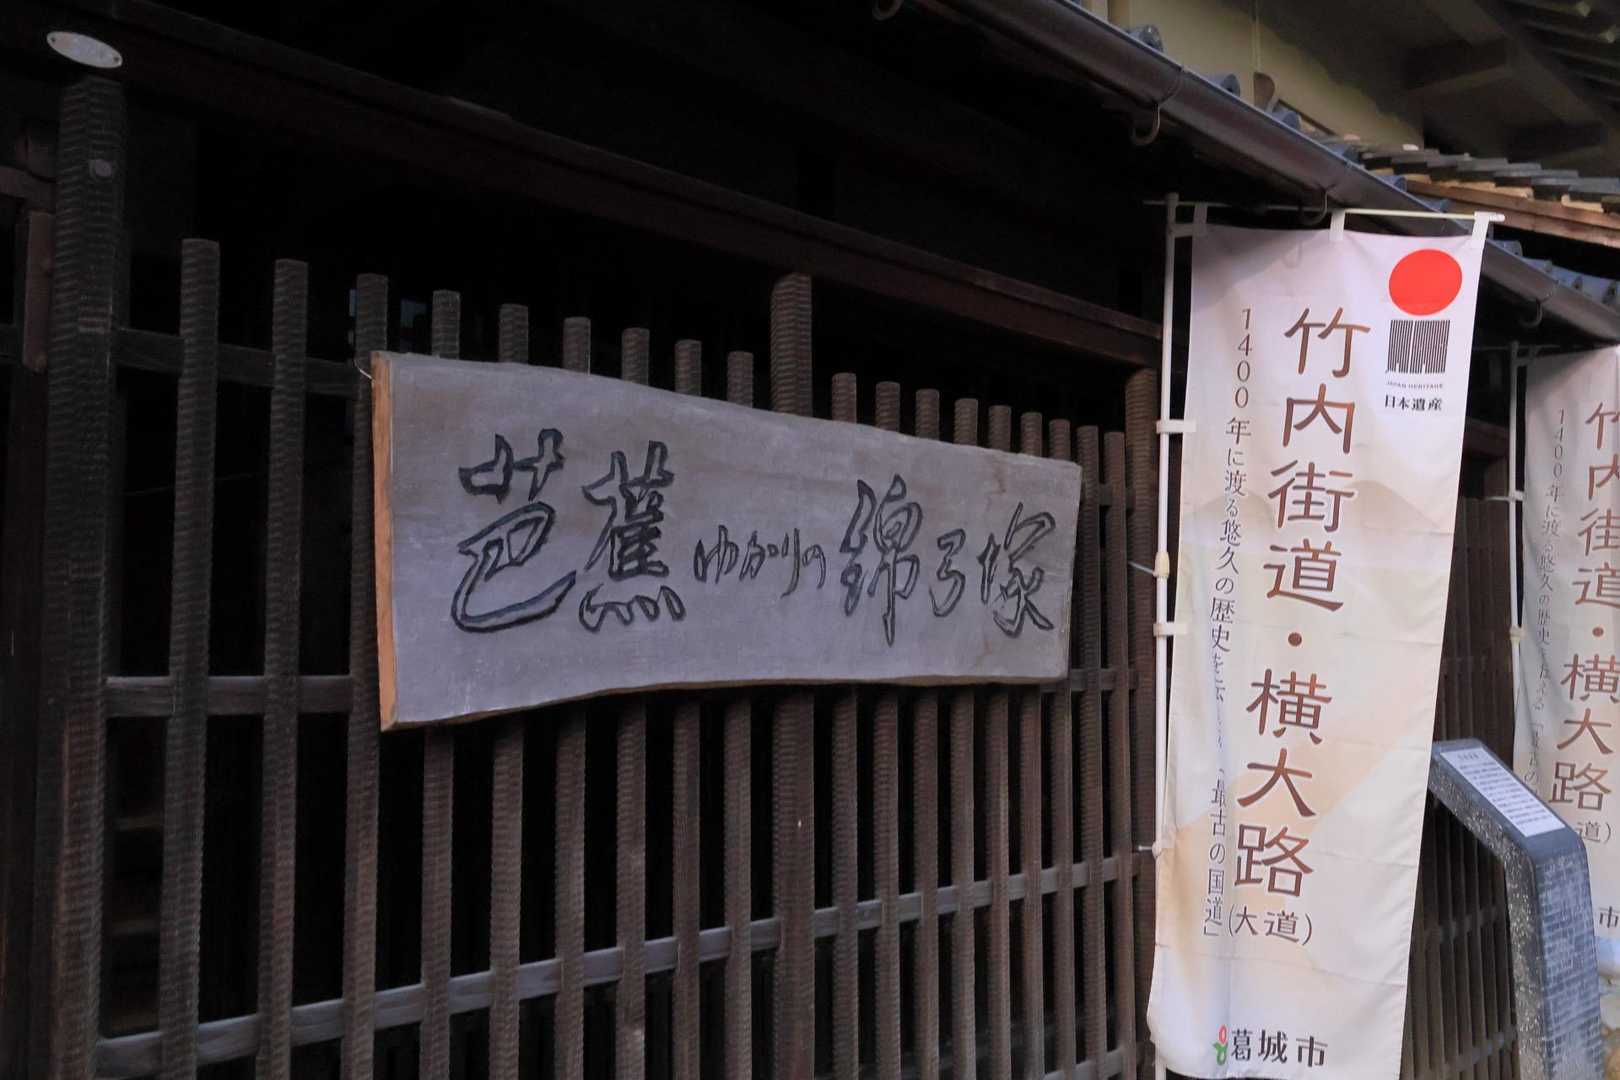 芭蕉ゆかりの綿弓塚
JAPAN HERITAGE
日本遺産
竹内街道・横大路
(大道)
1400年に渡る悠久の歴史を伝
「最古の国道」
葛城市
竹内街道・横大路
道)
1400年に渡る悠久の歴史
市